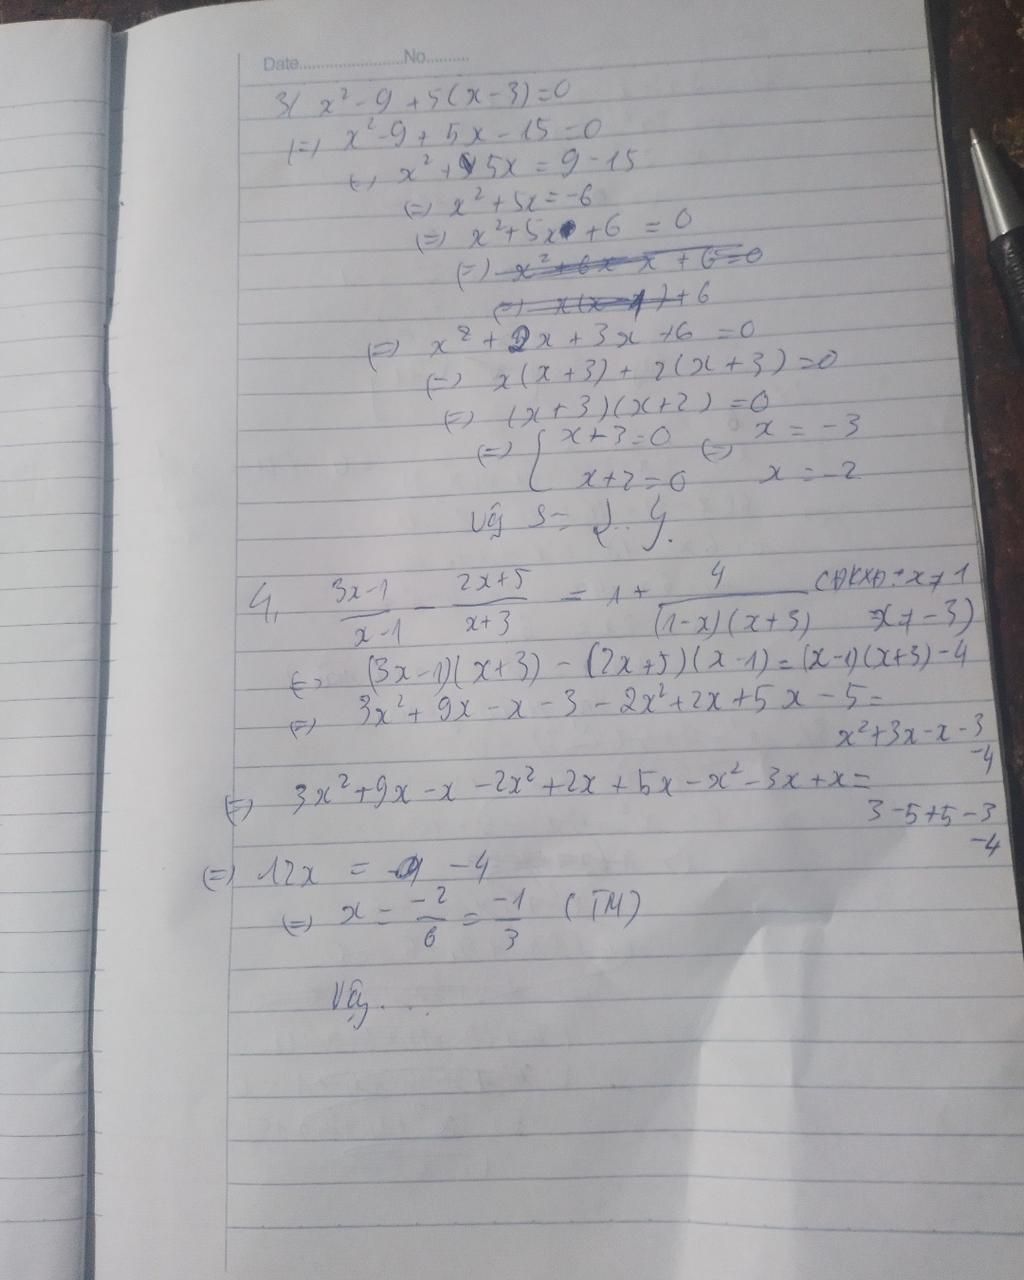 Date.......................No..........
3( x² - 9 + 5(x - 3) = 0
(=) x² - 9 + 5x - 15 = 0
(=) x² + 5x = 9 - 15
(=) x² + 5x = -6
(=) x² + 5x + 6 = 0
(=) x² + 6x - x + 6 = 0
(=) x(x - 1) + 6
(=) x² + 2x + 3x + 6 = 0
(=) x(x + 3) + 2(x + 3) = 0
(=) (x + 3)(x + 2) = 0
(=) { x + 3 = 0 (=) x = -3
x + 2 = 0 x = -2
Vậy S = {..}.
4, (3x-1)/(x-1) - (2x+5)/(x+3) = 1 + 4/((1-x)(x+3)) (ĐKXĐ: x ≠ 1
x ≠ -3)
(=) (3x-1)(x+3) - (2x+5)(x-1) = (x-1)(x+3) - 4
(=) 3x² + 9x - x - 3 - 2x² + 2x + 5x - 5 =
x² + 3x - x - 3
-4
(=) 3x² + 9x - x - 2x² + 2x + 5x - x² - 3x + x =
3 - 5 + 5 - 3
-4
(=) 12x = -4
(=) x = -2/6 = -1/3 (TM)
Vậy....